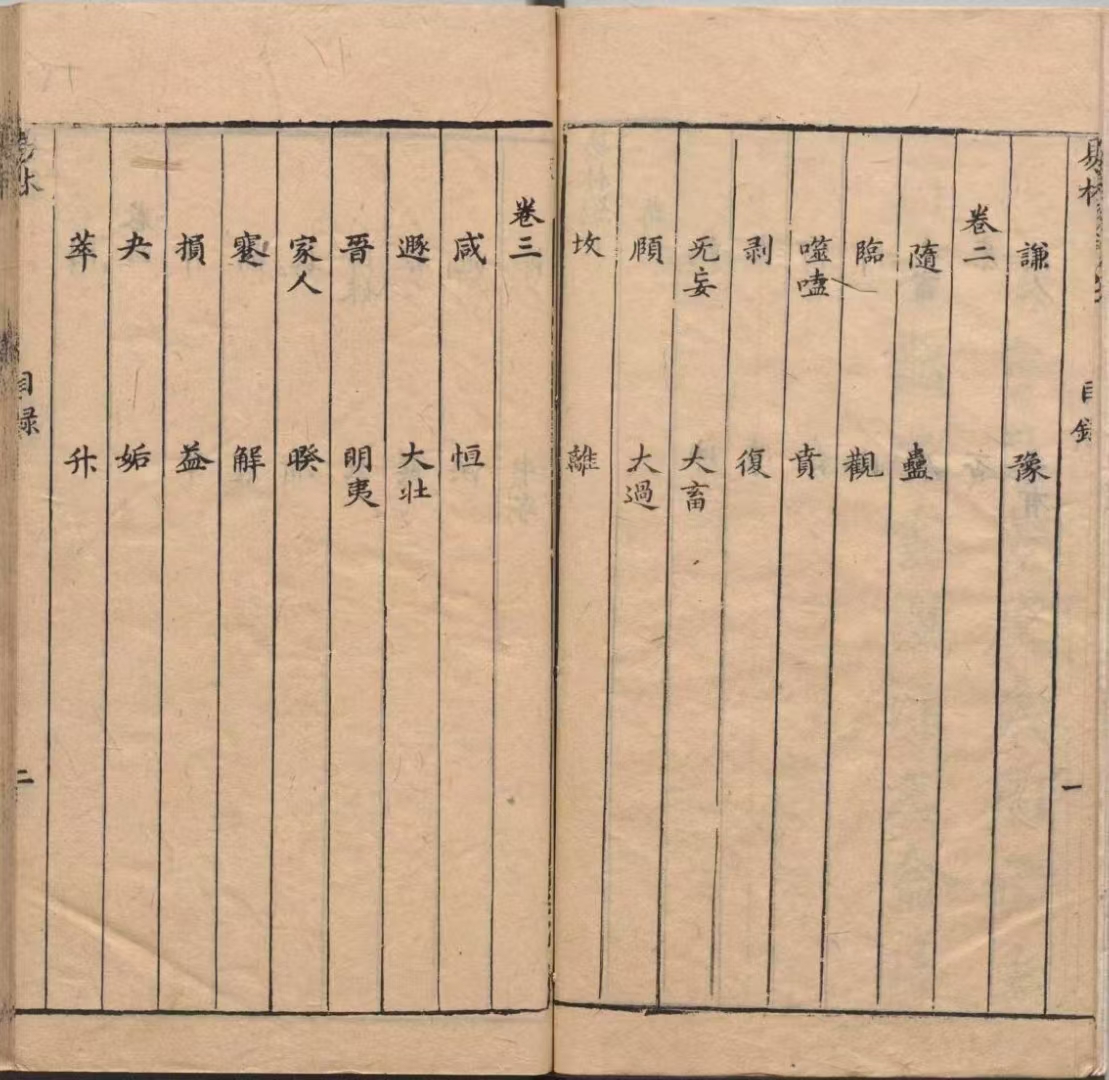 易林 目錄 一
謙 豫
卷二
隨 蠱
臨 觀
噬嗑 賁
剥 復
无妄 大畜
頤 大過
坎 離
卷三
咸 恒
遯 大壯
晉 明夷
家人 睽
蹇 解
損 益
夬 姤
萃 升
易林 目録 二